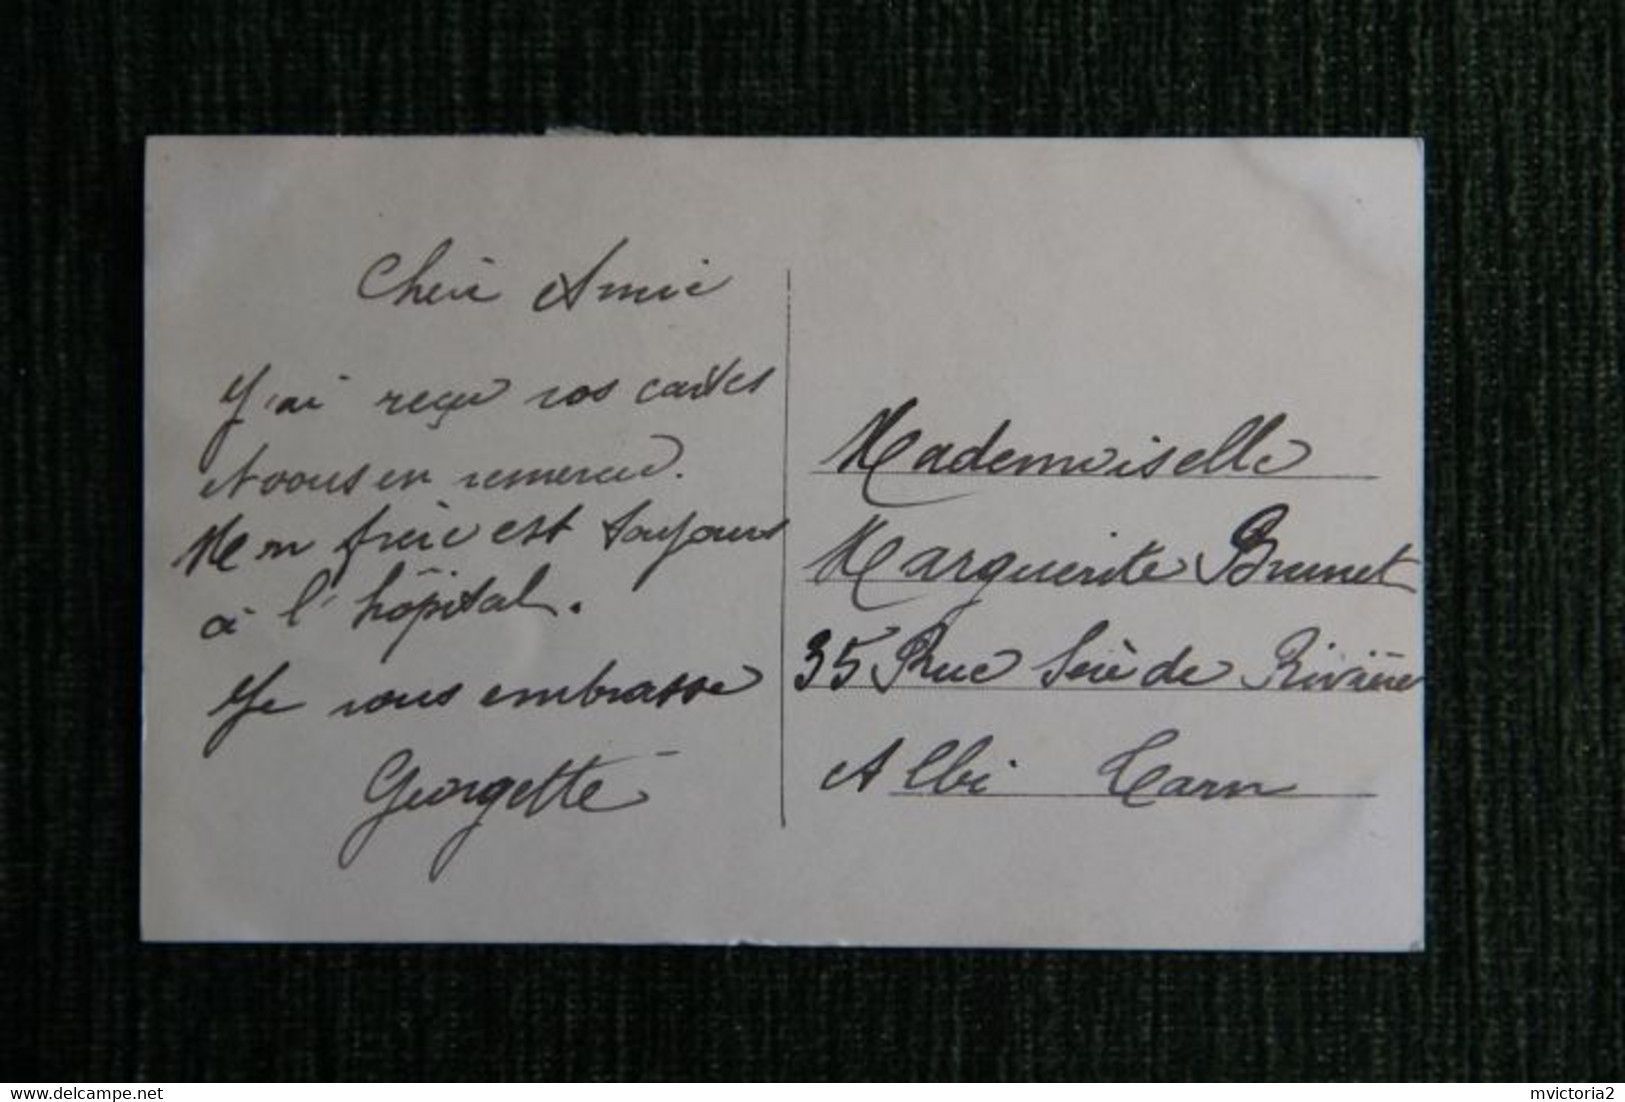 Chère Amie
J'ai reçu vos cartes
et vous en remercie.
Mon frère est toujours
à l'hôpital.
Je vous embrasse
Georgette
Mademoiselle
Marguerite Brunet
35 Rue de Rivière
Albi Tarn
www.delcampe.net
mvictoria2